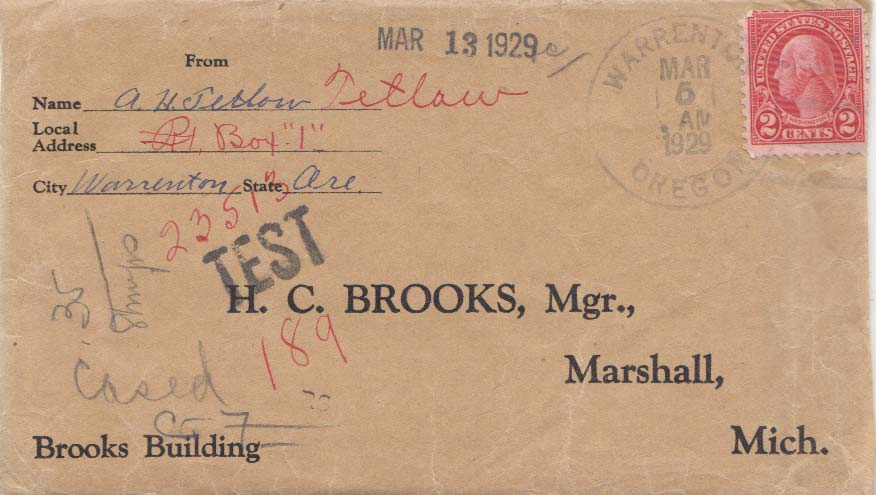 MAR 13 1929
From
Name A. H. Tetlow Tetlaw
Local
Address Rt. Box "1"
City Warrenton State Ore.
WARRENTO
MAR
5
AM
1929
OREGON
UNITED STATES POSTAGE
2 CENTS 2
23513
TEST
35
Stamps
H. C. BROOKS, Mgr.,
189
Marshall,
Cased
Brooks Building
Mich.